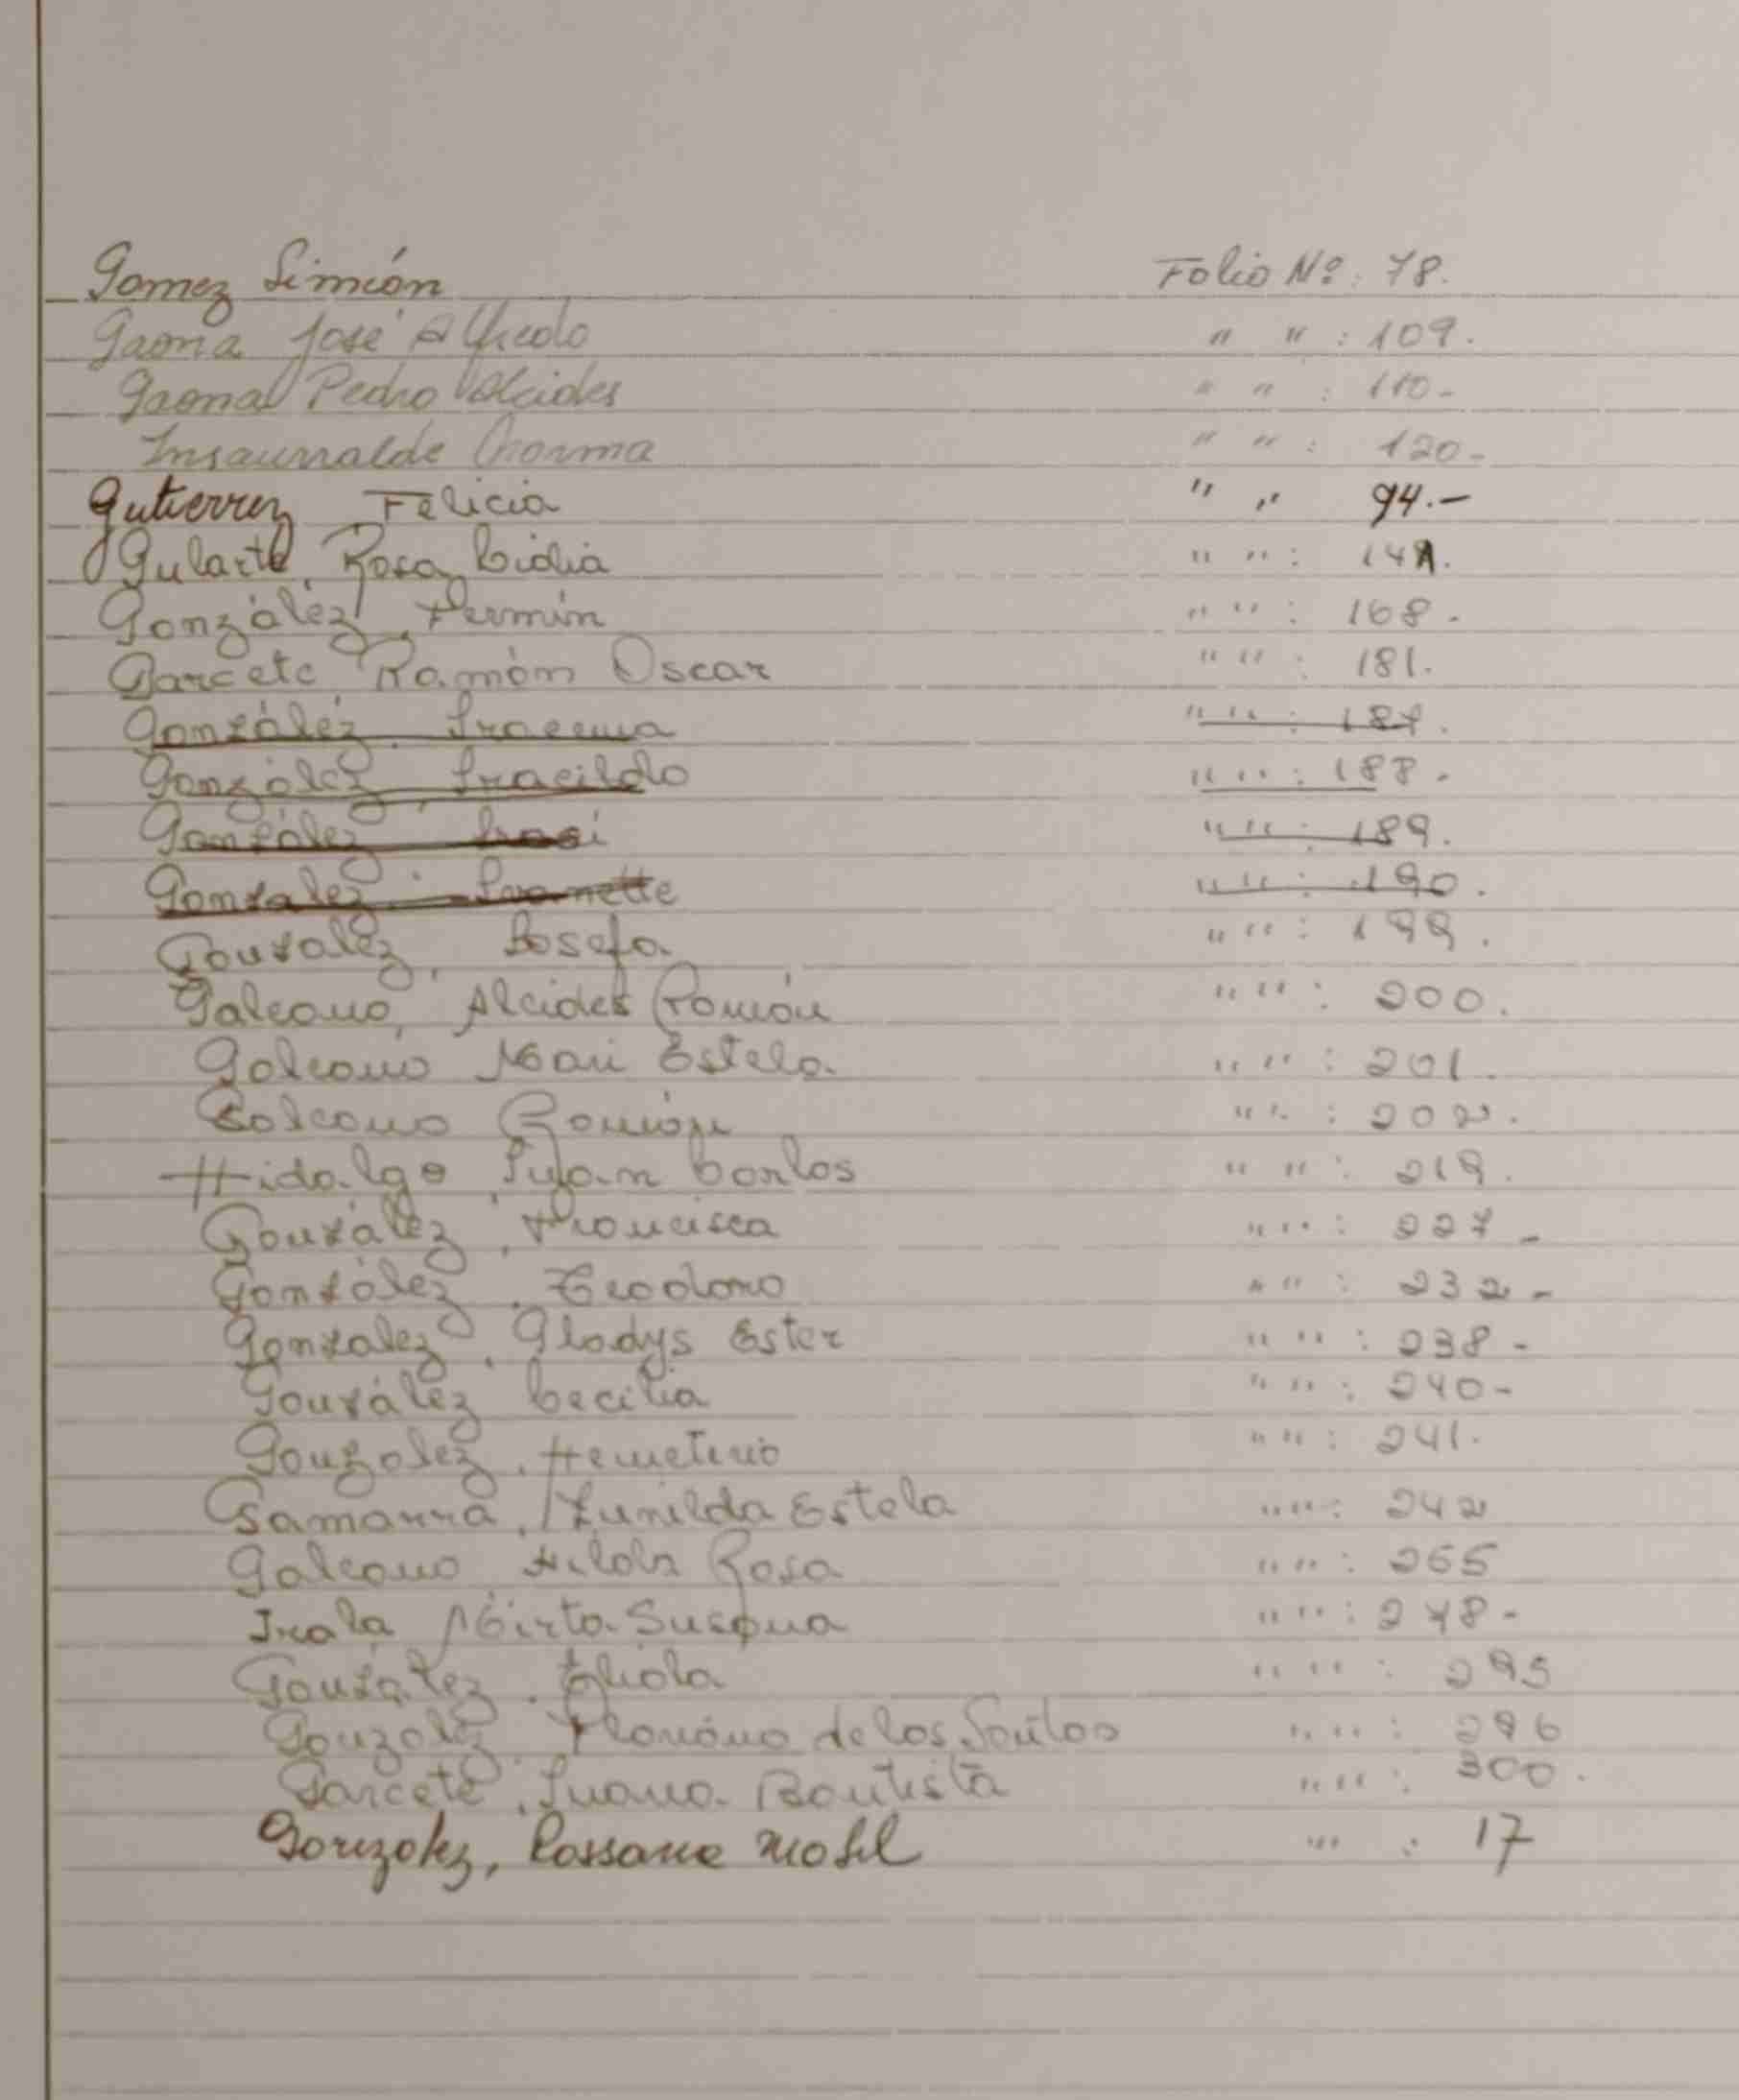 Gomez Simión Folio Nº: 78.
Gaona José Alfredo " " : 109.
Gaona Pedro Alcides " " : 110-
Insaurralde Norma " " : 120-
Gutierrez Felicia " " 94.-
Gularte, Rosa Lidia " " : 141.
González, Fermín " " : 168-
Garcete, Ramón Oscar " " : 181.
González, Iracema " " : 187.
González, Iracildo " " : 188-
González, " " : 189.
Gonzalez, Ivonette " " : 190.
González, Josefa " " : 199.
Galeano, Alcides Ramón " " : 200.
Galeano Mari Estela " " : 201.
Galeano Ramón " " : 202.
Hidalgo, Juan Carlos " " : 219.
González, Francisca " " : 227-
González, Teodoro " " : 232-
Gonzalez, Gladys Ester " " : 238-
González Cecilia " " : 240-
Gonzalez, Hemeterio " " : 241.
Gamarra, Zunilda Estela " " : 242
Galeano, Hilda Rosa " " : 265
Irala Mirta Susana " " : 278-
González, Elida " " : 295
Gonzalez, de los Santos " " : 296
Garcete, Juana Bautista " " : 300.
Gonzalez, Rossana Mabel " : 17